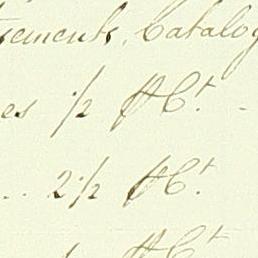 sements, Catalog
es 1/2 ⅌ Ct. -
.. 2 1/2 ⅌ Ct.
⅌ Ct